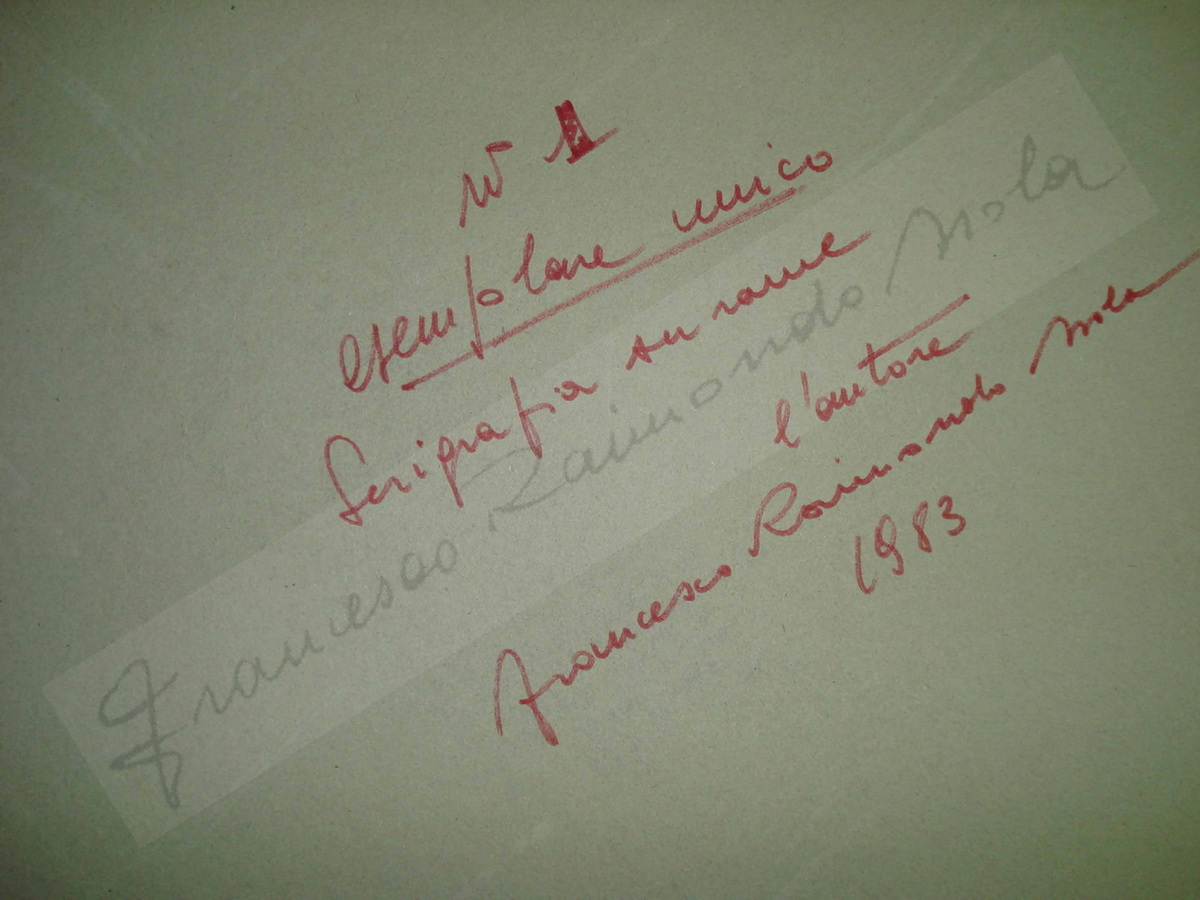 N° 1
esemplare unico
Serigrafia su rame
l'autore
Francesco Raimondo Nola
1983
Francesco Raimondo Nola